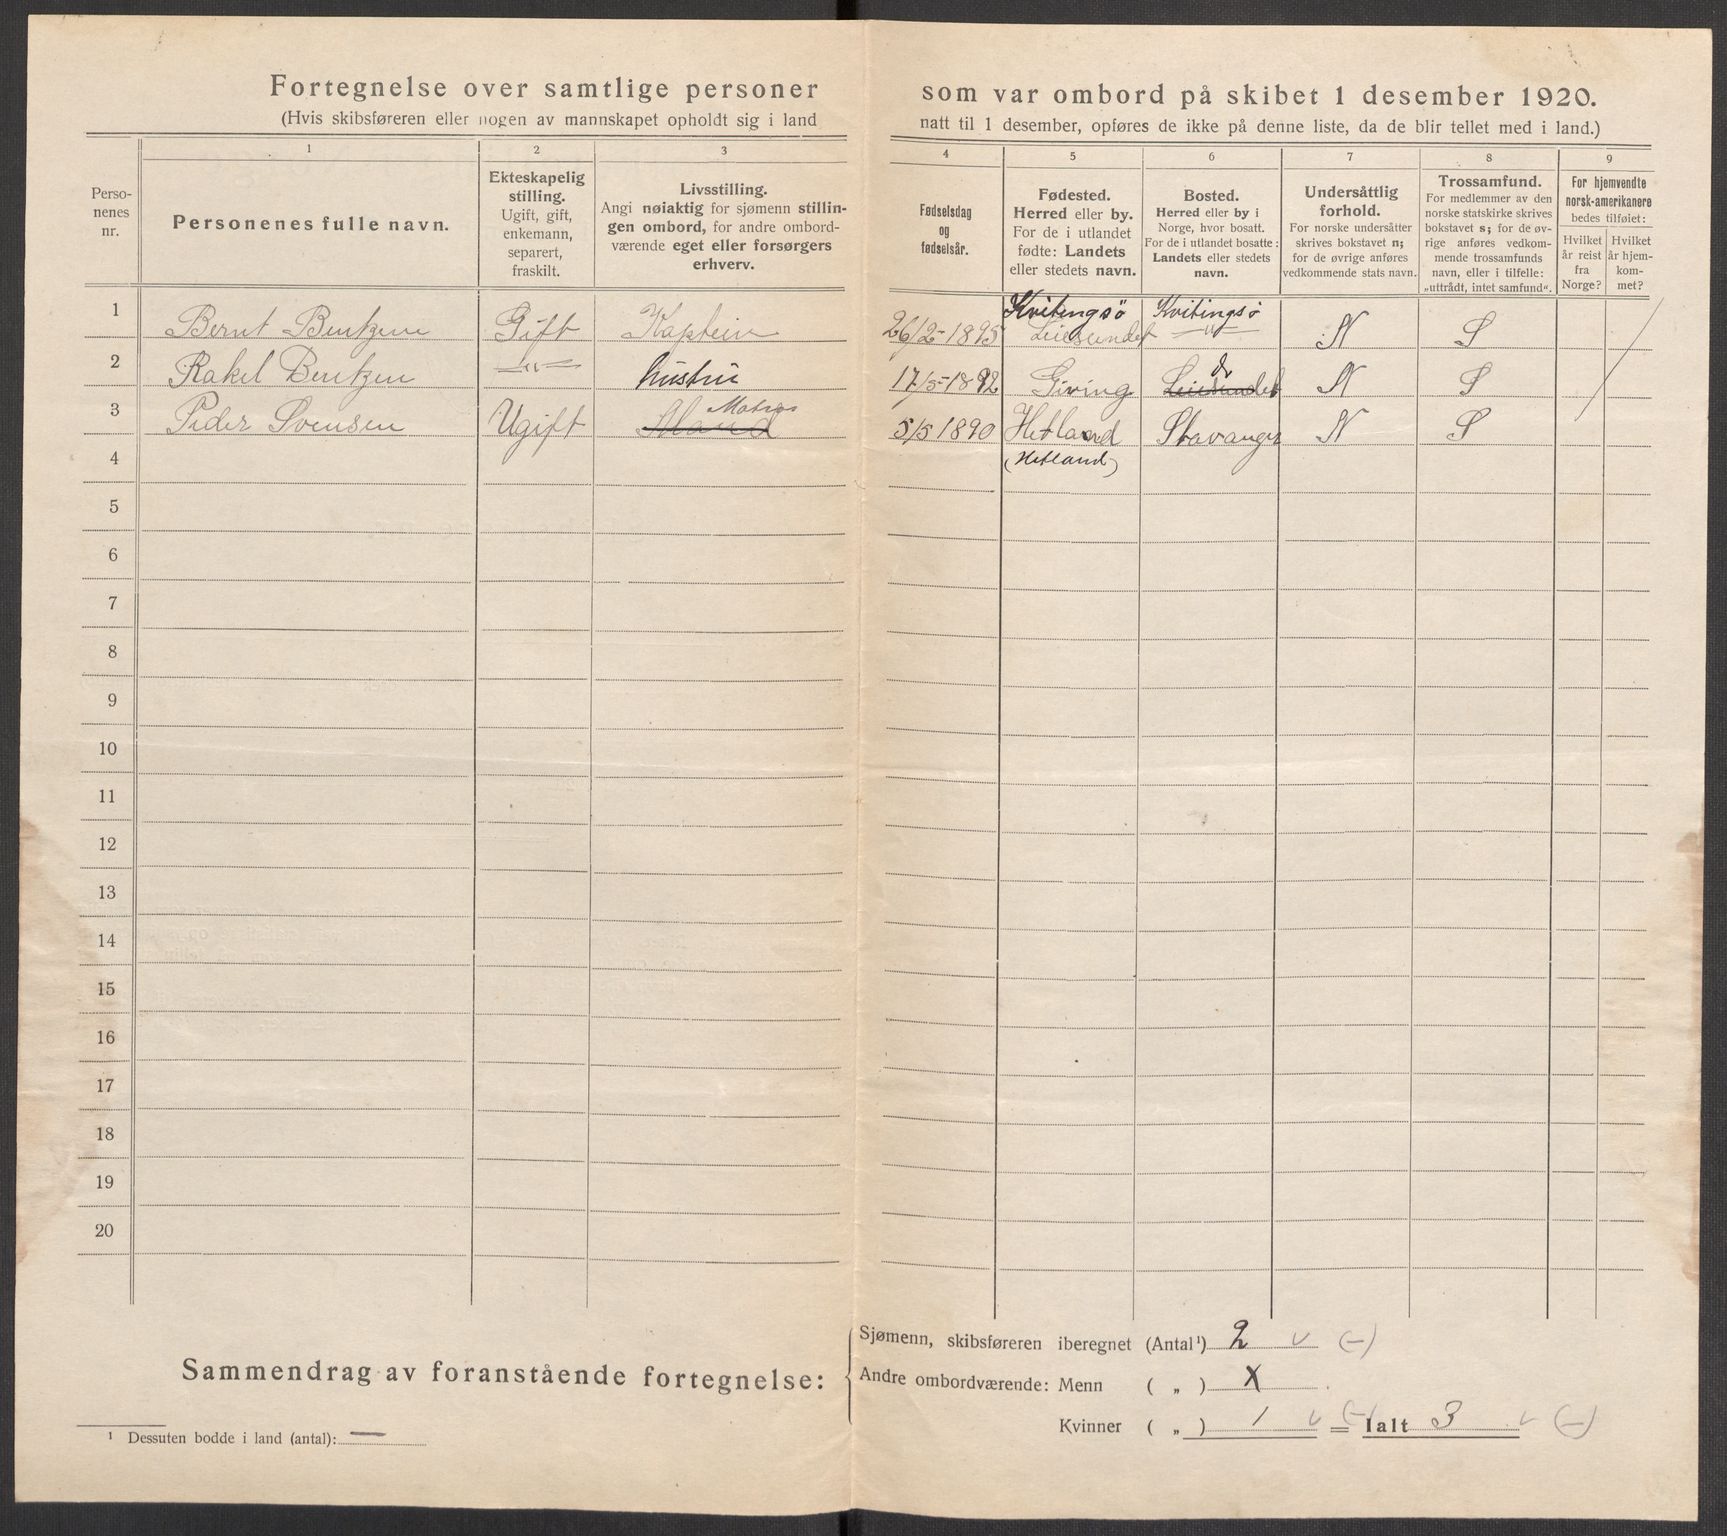 Fortegnelse over samtlige personer som var ombord på skibet 1 desember 1920.
(Hvis skibsføreren eller nogen av mannskapet opholdt sig i land natt til 1 desember, opføres de ikke på denne liste, da de blir tellet med i land.)
Perso-
nenes
nr.
1
Personenes fulle navn.
2
Ekteskapelig
stilling.
Ugift, gift,
enkemann,
separert,
fraskilt.
3
Livsstilling.
Angi nøiaktig for sjømenn stillin-
gen ombord, for andre ombord-
værende eget eller forsørgers
erhverv.
4
Fødselsdag
og
fødselsår.
5
Fødested.
Herred eller by.
For de i utlandet
fødte: Landets
eller stedets navn.
6
Bosted.
Herred eller by i
Norge, hvor bosatt.
For de i utlandet bosatte:
Landets eller stedets
navn.
7
Undersåttlig
forhold.
For norske undersåtter
skrives bokstavet n;
for de øvrige anføres
vedkommende stats navn.
8
Trossamfund.
For medlemmer av den
norske statskirke skrives
bokstavet s; for de øv-
rige anføres vedkom-
mende trossamfunds
navn, eller i tilfelle:
„uttrådt, intet samfund“.
9
For hjemvendte
norsk-amerikanere
bedes tilføiet:
Hvilket
år reist
fra
Norge?
Hvilket
år hjem-
kom-
met?
Kvitingsö Kvitingsö
1 Bernt Bentzen Gift Kaptein 26/2-1895 Leiesundet —"— N S
2 Rakel Bentzen —"— hustru 17/5-1892 Giving Leiesundet do N S
Matros
3 Peder Svensen Ugift Mand 5/5 1890 Hetland Stavanger N S
4 (Hetland)
5
6
7
8
9
10
11
12
13
14
15
16
17
18
19
20
Sammendrag av foranstående fortegnelse:
Sjømenn, skibsføreren iberegnet (Antal¹) 2 v (–)
Andre ombordværende: Menn ( „ ) X
Kvinner ( „ ) 1 v (–) = Ialt 3 v (–)
¹ Dessuten bodde i land (antal): —